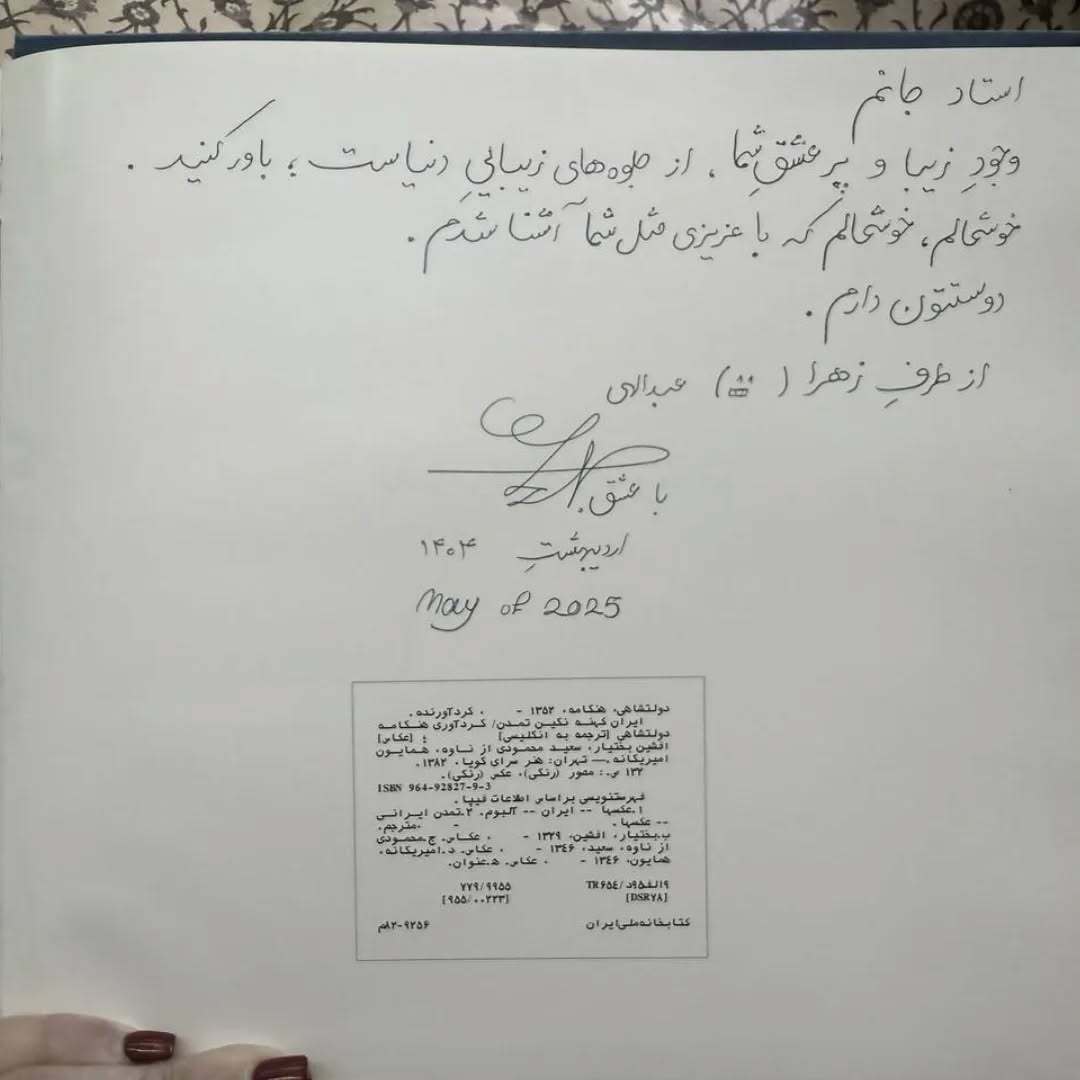 استاد جانم
وجودِ زیبا و پر عشقِ شما، از جلوه‌های زیباییِ دنیاست؛ باور کنید.
خوشحالم، خوشحالم که با عزیزی مثل شما آشنا شدم.
دوستتون دارم.
از طرفِ زهرا ( ) عبدالهی
با عشق.
اردیبهشتِ ۱۴۰۴
May of 2025
دولتشاهی، هنگامه، ۱۳۵۲ - ، گردآورنده.
ایران کهنه نگین تمدن/ گردآوری هنگامه
دولتشاهی [ترجمه به انگلیسی] ؛ [عکاس]
افشین بختیار، سعید محمودی از ناوه، همایون
امیریگانه.— تهران: هنر سرای گویا، ۱۳۸۲.
۱۳۲ ص.: مصور (رنگی)، عکس (رنگی).
ISBN 964-92827-9-3
فهرستنویسی براساس اطلاعات فیپا.
۱.عکسها -- ایران -- آلبوم. ۲.تمدن ایرانی
-- عکسها. - ،مترجم.
ب.بختیار، افشین، ۱۳۲۹ - ، عکاس. ج.محمودی
از ناوه، سعید، ۱۳۴۶ - ، عکاس. د.امیریگانه،
همایون، ۱۳۴۶ - ، عکاس. ه.عنوان.
۷۷۹/۹۹۵۵ TR۶۵۴/
[۹۵۵/۰۰۲۲۳] [DSR۷۸]
کتابخانه ملی ایران ۸۲-۹۲۵۶م